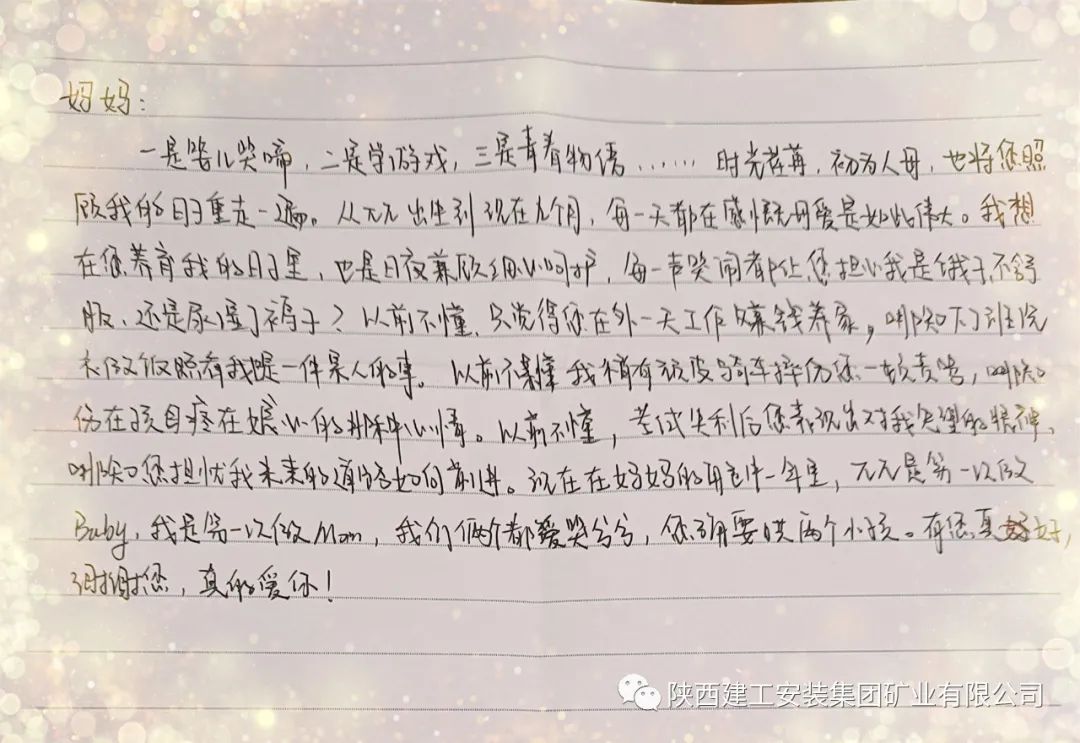 妈妈:
一是婴儿哭啼,二是学游戏,三是青春物语…… 时光荏苒,初为人母,也将您照
顾我的日子重走一遍。从元元出生到现在九个月,每一天都在感慨母爱是如此伟大。我想
在您养育我的日子里,也是日夜兼顾细心呵护,每一声哭闹都让您担心我是饿了,不舒
服、还是尿湿了裤子?以前不懂,只觉得您在外一天工作赚钱养家,哪知下了班洗
衣做饭照看我是一件累人的事。以前不懂我稍有顽皮骑车摔伤您一顿责骂,哪知
伤在孩身疼在娘心的那种心情。以前不懂,考试失利后您表现出对我失望的眼神,
哪知您担忧我未来的道路如何前进。现在在妈妈的角色中一年里,元元是第一次做
Baby,我是第一次做Mom,我们俩个都爱哭兮兮,您确要哄两个小孩。有您真好,
谢谢您,真的爱你!
陕西建工安装集团矿业有限公司